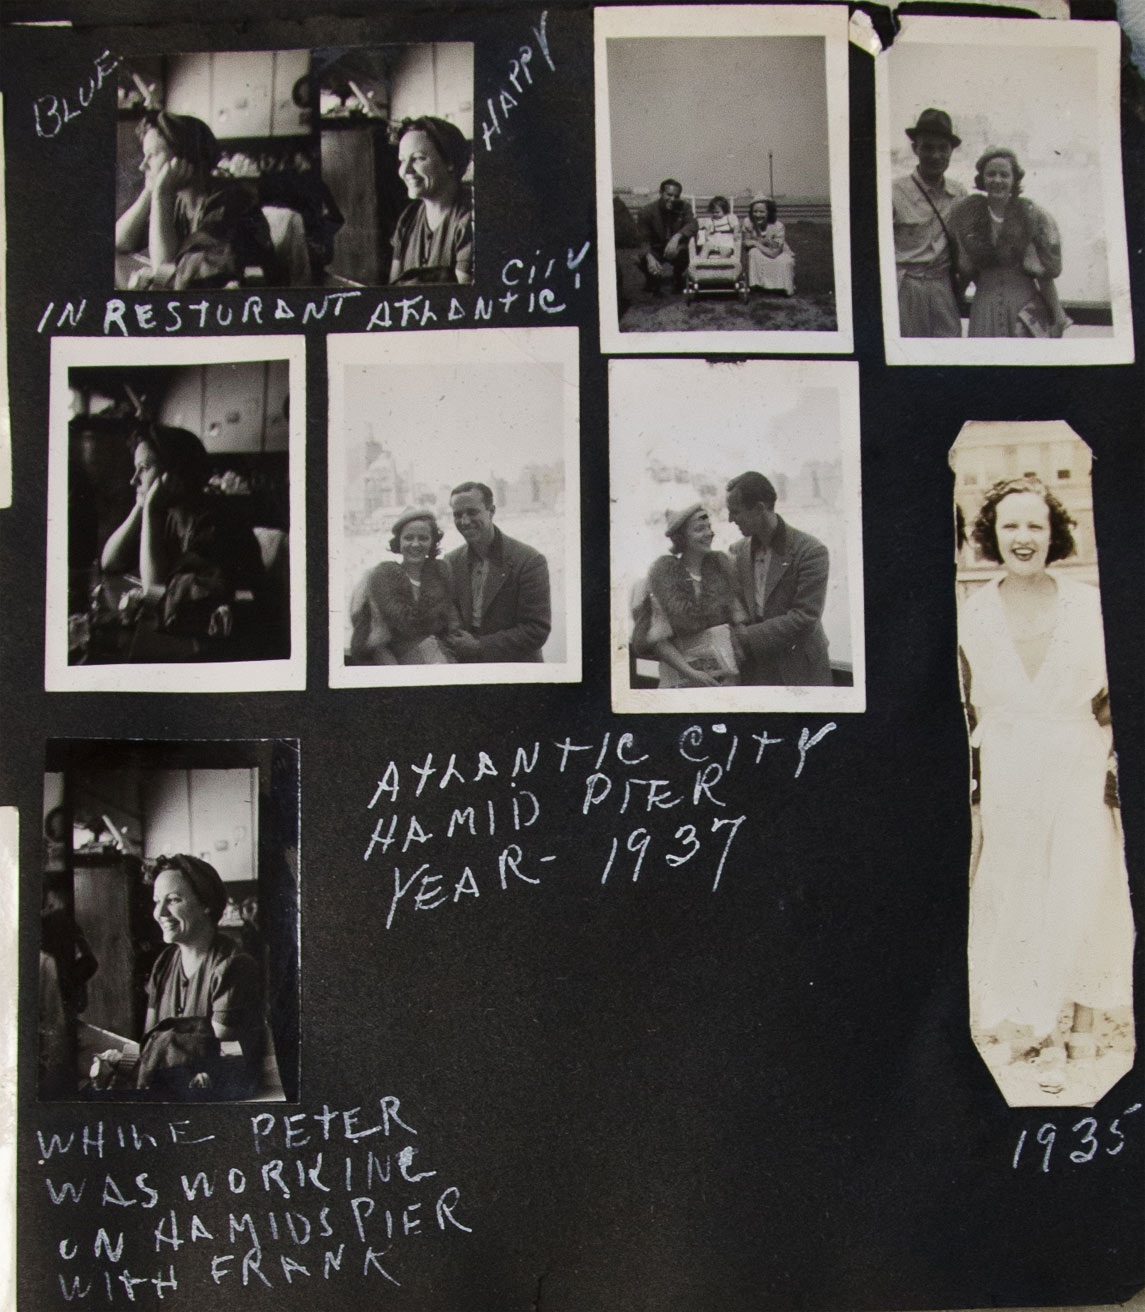 BLUE
HAPPY
IN RESTURANT ATLANTIC CITY
ATLANTIC CITY
HAMID PIER
YEAR- 1937
1935
WHILE PETER
WAS WORKING
ON HAMIDS PIER
WITH FRANK